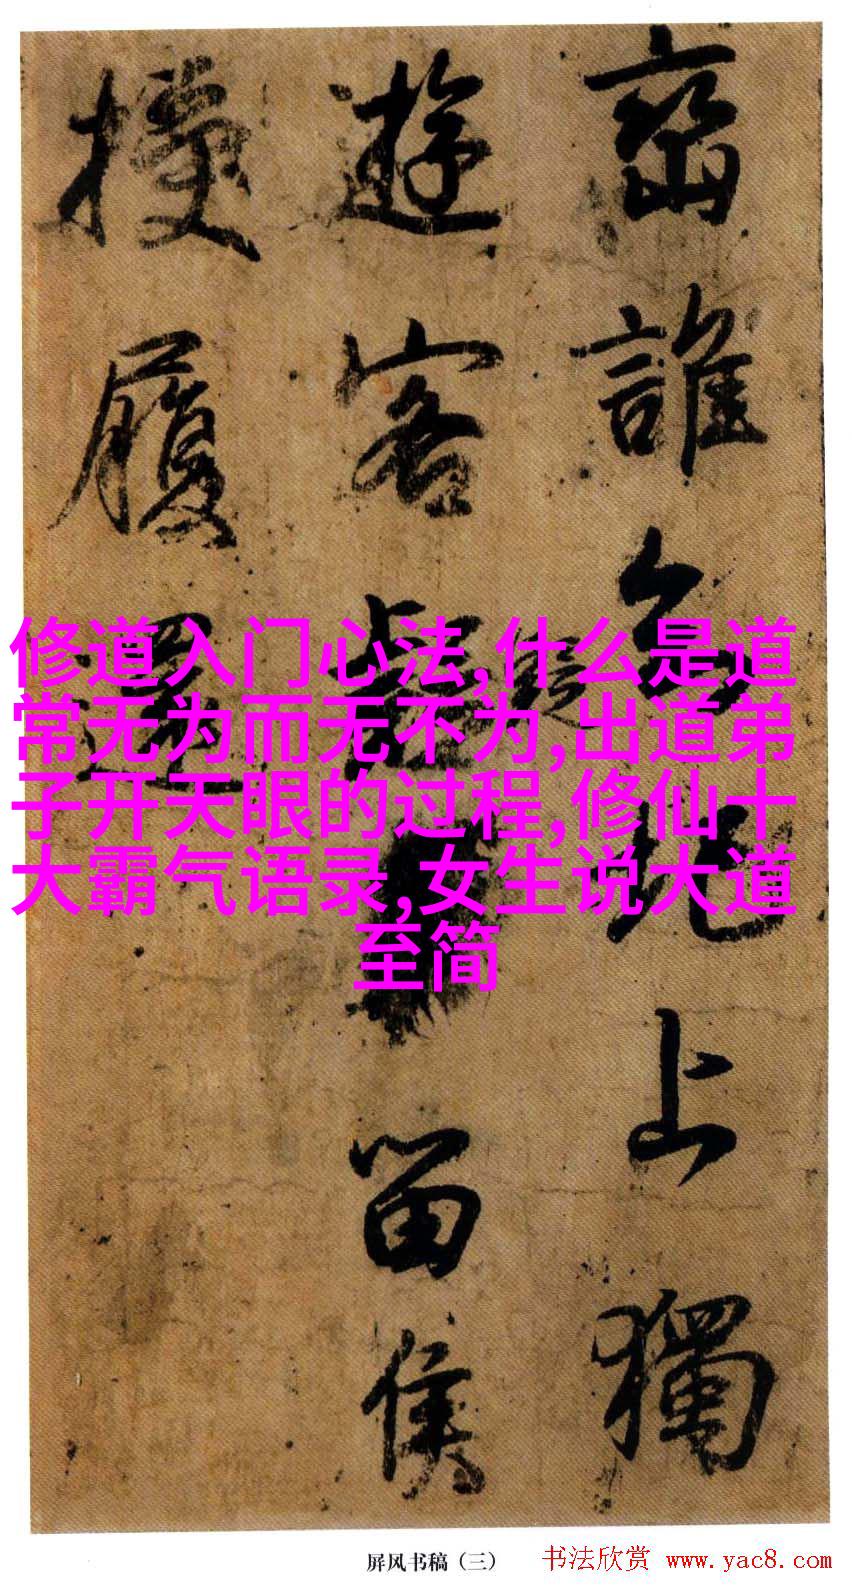 峦誰此上獨
遊客留侯
履還
修道入门心法,什么是道
常无为而无不为,出道弟
子开天眼的过程,修仙十
大霸气语录,女生说大道
至简
屏风书稿（三）
书法欣赏 www.yac8.com